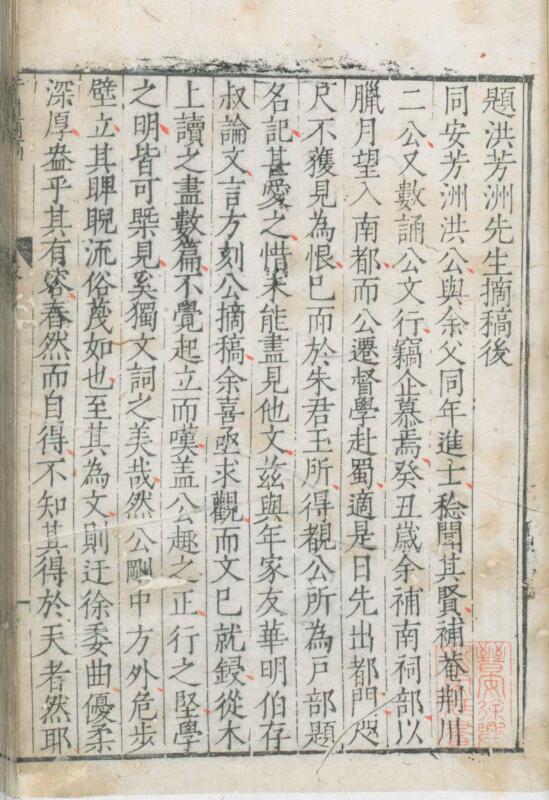 題洪芳洲先生摘稿後
同安芳洲洪公與余父同年進士稔聞其賢補菴荆川
二公又數誦公文行竊企慕焉癸丑歲余補南祠部以
臘月望入南都而公遷督學赴蜀適是日先出都門咫
尺不獲見為恨已而於朱君玉所得覩公所為戸部題
名記甚愛之惜未能盡見他文茲與年家友華明伯存
叔論文言方刻公摘稿余喜亟求觀而文已就鋟從木
上讀之盡數篇不覺起立而嘆盖公趣之正行之堅學
之明皆可槩見奚獨文詞之美哉然公剛中方外危步
壁立其睥睨流俗蔑如也至其為文則迂徐委曲優柔
深厚盎乎其有容春然而自得不知其得於天者然耶
晉安徐